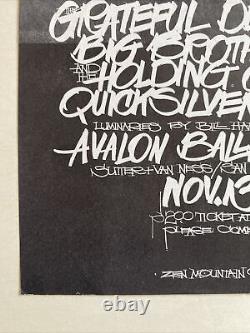 GRATEFUL D
BIG BROTH
AND THE HOLDING
QUICKSILVER
LUMINARIES BY BILL HA
AVALON BAL
SUTTER + VAN NESS / SAN
NOV. 13
TICKET AT
PLEASE COME
ZEN MOUNTAIN
ebth.com